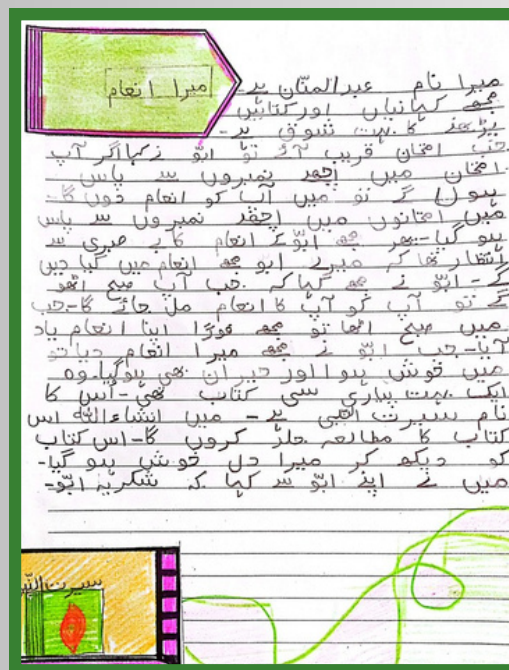 میرا انعام
میرا نام عبدالمنّان ہے۔
مجھے کہانیاں اور کتابیں
پڑھنے کا بہت شوق ہے۔
جب امتحان قریب آئے تو ابّو نے کہا اگر آپ
امتحان میں اچھے نمبروں سے پاس
ہوں گے تو میں آپ کو انعام دوں گا۔
میں امتحانوں میں اچھے نمبروں سے پاس
ہو گیا۔ پھر مجھے ابّو کے انعام کا بے صبری سے
انتظار تھا کہ میرے ابو مجھے انعام میں کیا دیں
گے۔ ابّو نے مجھے کہا کہ جب آپ صبح اٹھو
گے تو آپ کو آپ کا انعام مل جائے گا۔ جب
میں صبح اٹھا تو مجھے فورًا اپنا انعام یاد
آیا۔ جب ابّو نے مجھے میرا انعام دیا تو
میں خوش ہوا اور حیران بھی ہوگیا۔ وہ
ایک بہت پیاری سی کتاب تھی۔ اُس کا
نام سیرت النبی ہے۔ میں انشاءاللہ اس
کتاب کا مطالعہ جلد کروں گا۔ اس کتاب
کو دیکھ کر میرا دل خوش ہو گیا۔
میں نے اپنے ابّو سے کہا کہ شکریہ ابّو۔
سیرت النبی